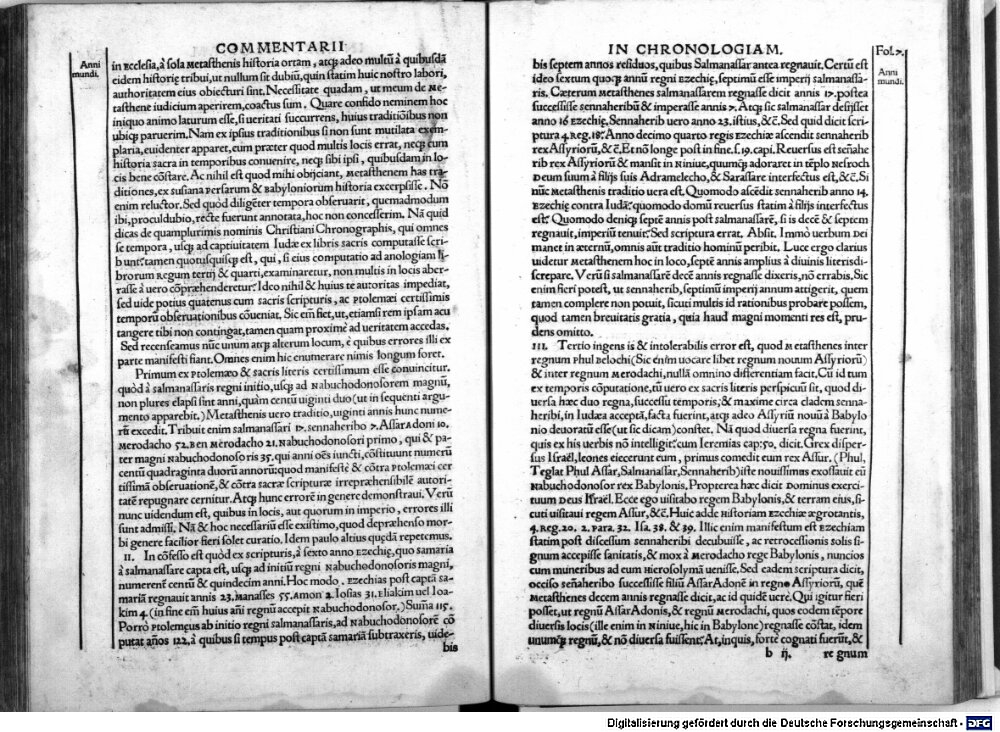 COMMENTARII
Anni
mundi.
in Ecclesia, à sola Metasthenis historia ortam, atq; adeo multũ à quibusdã
eidem historię tribui, ut nullum sit dubiũ, quin statim huic nostro labori,
authoritatem eius obiecturi sint. Necessitate quadam, ut meum de Me-
tasthene iudicium aperirem, coactus sum. Quare confido neminem hoc
iniquo animo laturum esse, si ueritati succurrens, huius traditiõibus non
ubiq; paruerim. Nam ex ipsius traditionibus si non sunt mutilata exem-
plaria, euidenter apparet, eum præter quod multis locis errat, neq; cum
historia sacra in temporibus conuenire, neq; sibi ipsi, quibusdam in lo-
cis bene cõstare. Ac nihil est quod mihi obijciant, Metasthenem has tra-
ditiones, ex susiana Persarum & Babyloniorum historia excerpsisse. Nõ
enim reluctor. Sed quòd diligẽter tempora obseruarit, quemadmodum
ibi, proculdubio, rectè fuerunt annotata, hoc non concesserim. Nã quid
dicas de quamplurimis nominis Christiani Chronographis, qui omnes
se tempora, usq; ad captiuitatem Iudæ ex libris sacris computasse scri-
bunt: tamen quotusquisq; est, qui, si eius computatio ad anologiam li-
brorum Regum tertij & quarti, examinaretur, non multis in locis aber-
rasse à uero cõpræhenderetur: Ideo nihil & huius te autoritas impediat,
sed uide potius quatenus cum sacris scripturis, ac Ptolemæi certissimis
temporũ obseruationibus cõueniat. Sic em̃ fiet, ut, etiamsi rem ipsam acu
tangere tibi non contingat, tamen quam proximè ad ueritatem accedas.
Sed recenseamus nũc unum atq; alterum locum, è quibus errores illi ex
parte manifesti fiant. Omnes enim hic enumerare nimis longum foret.
Primum ex Ptolemæo & sacris literis certissimum esse conuincitur.
quòd à salmanassaris regni initio, usq; ad Nabuchodonosorem magnũ,
non plures elapsi sint anni, quàm centũ uiginti duo (ut in sequenti argu-
mento apparebit.) Metasthenis uero traditio, uiginti annis hunc nume-
rũ excedit. Tribuit enim salmanassari 17. sennaheribo 7. Assar Adoni 10.
Merodacho 52. Ben Merodacho 21. Nabuchodonosori primo, qui & pa-
ter magni Nabuchodonosoris 35. qui anni oẽs iuncti, cõstituunt numerũ
centũ quadraginta duorũ annorũ: quod manifestè & cõtra Ptolemæi cer
tissimã obseruationẽ, & cõtra sacræ scripturæ irrepræhensibilẽ autori-
tatẽ repugnare cernitur. Atq; hunc errorẽ in genere demonstraui. Verũ
nunc uidendum est, quibus in locis, aut quorum in imperio, errores illi
sunt admissi. Nã & hoc necessariũ esse existimo, quod depræhenso mor-
bi genere facilior fieri solet curatio. Idem paulo altius quędã repetemus.
II. In cõfesso est quòd ex scripturis, à sexto anno Ezechię, quo samaria
à salmanassare capta est, usq; ad initiũ regni Nabuchodonosoris magni,
numerent centũ & quindecim anni. Hoc modo. Ezechias post captã sa-
mariã regnauit annis 23. Manasses 55. Amon 2. Iosias 31. Eliakim uel Ioa-
kim 4. (in fine em̃ huius añi regnũ accepit Nabuchodonosor.) Sum̃a 115.
Porrò Ptolemęus ab initio regni salmanassaris, ad Nabuchodonosorẽ cõ
putat años 122. à quibus si tempus post captã samariã subtraxeris, uide-
bis
IN CHRONOLOGIAM.
Fol. 7.
Anni
mundi.
bis septem annos residuos, quibus Salmanassar antea regnauit. Certũ est
ideo sextum quoq; annũ regni Ezechię, septimũ esse imperij salmanassa-
ris. Cæterum Metasthenes salmanassarem regnasse dicit annis 17. postea
successisse sennaheribũ & imperasse annis 7. Atq; sic salmanassar desijsset
anno 16 Ezechię, Sennaherib uero anno 23. istius, &c̃. Sed quid dicit scri-
ptura 4. Reg. 18: Anno decimo quarto regis Ezechiæ ascendit sennaherib
rex Assyriorũ, &c̃. Et nõ longe post in fine. s. 19. capi. Reuersus est señahe
rib rex Assyriorũ & mansit in Niniue, quumq; adoraret in tẽplo Nesroch
Deum suum à filijs suis Adramelecho, & Sarassare interfectus est, &c̃. Si
nũc Metasthenis traditio uera est. Quomodo ascẽdit sennaherib anno 14.
Ezechię contra Iudã: quomodo domũ reuersus statim à filijs interfectus
est: Quomodo deniq; septẽ annis post salmanassarẽ, si is decẽ & septem
regnauit, imperiũ tenuit: Sed scriptura errat. Absit. Immò uerbum Dei
manet in æternũ, omnis aũt traditio hominũ peribit. Luce ergo clarius
uidetur Metasthenem hoc in loco, septẽ annis amplius à diuinis literis di-
screpare. Verũ si salmanassarẽ decẽ annis regnasse dixeris, nõ errabis. Sic
enim fieri potest, ut sennaherib, septimũ imperij annum attigerit, quem
tamen complere non potuit, sicuti multis id rationibus probare possem,
quod tamen breuitatis gratia, quia haud magni momenti res est, pru-
dens omitto.
III. Tertio ingens is & intolerabilis error est, quod Metasthenes inter
regnum Phul Belochi (Sic enim uocare libet regnum nouum Assyriorũ)
& inter regnum Merodachi, nullã omnino differentiam facit. Cũ id tum
ex temporis cõputatione, tũ uero ex sacris literis perspicuũ sit, quod di-
uersa hæc duo regna, successu temporis, & maxime circa cladem senna-
heribi, in Iudæa acceptã, facta fuerint, atq; adeo Assyriũ nouũ à Babylo
nio deuoratũ esse (ut sic dicam) constet. Nã quod diuersa regna fuerint,
quis ex his uerbis nõ intelligit: cum Ieremias cap: 50. dicit. Grex disper-
sus Israël, leones eiecerunt eum, primus comedit eum rex Assur. (Phul,
Teglat Phul Assar, Salmanassar, Sennaherib) iste nouissimus exossauit eũ
Nabuchodonosor rex Babylonis. Propterea hæc dicit Dominus exerci-
tuum Deus Israël. Ecce ego uisitabo regem Babylonis, & terram eius, si-
cuti uisitaui regem Assur, &c̃. Huic adde Historiam Ezechiæ ægrotantis,
4. Reg. 20. 2. Para. 32. Isa. 38. & 39. Illic enim manifestum est Ezechiam
statim post discessum sennaheribi decubuisse, ac retrocessionis solis si-
gnum accepisse sanitatis, & mox à Merodacho rege Babylonis, nuncios
cum muneribus ad eum Hierosolymã uenisse. Sed eadem scriptura dicit,
occiso señaheribo successisse filiũ Assar Adonẽ in regno Assyriorũ, quẽ
Metasthenes decem annis regnasse dicit, ac id quidẽ uerè. Qui igitur fieri
posset, ut regnũ Assar Adonis, & regnũ Merodachi, quos eodem tẽpore
diuersis locis (ille enim in Niniue, hic in Babylone) regnasse cõstat, idem
unumq; regnũ, & nõ diuersa fuissent: At, inquis, fortè cognati fuerũt, &
b ij.
regnum
Digitalisierung gefördert durch die Deutsche Forschungsgemeinschaft - DFG